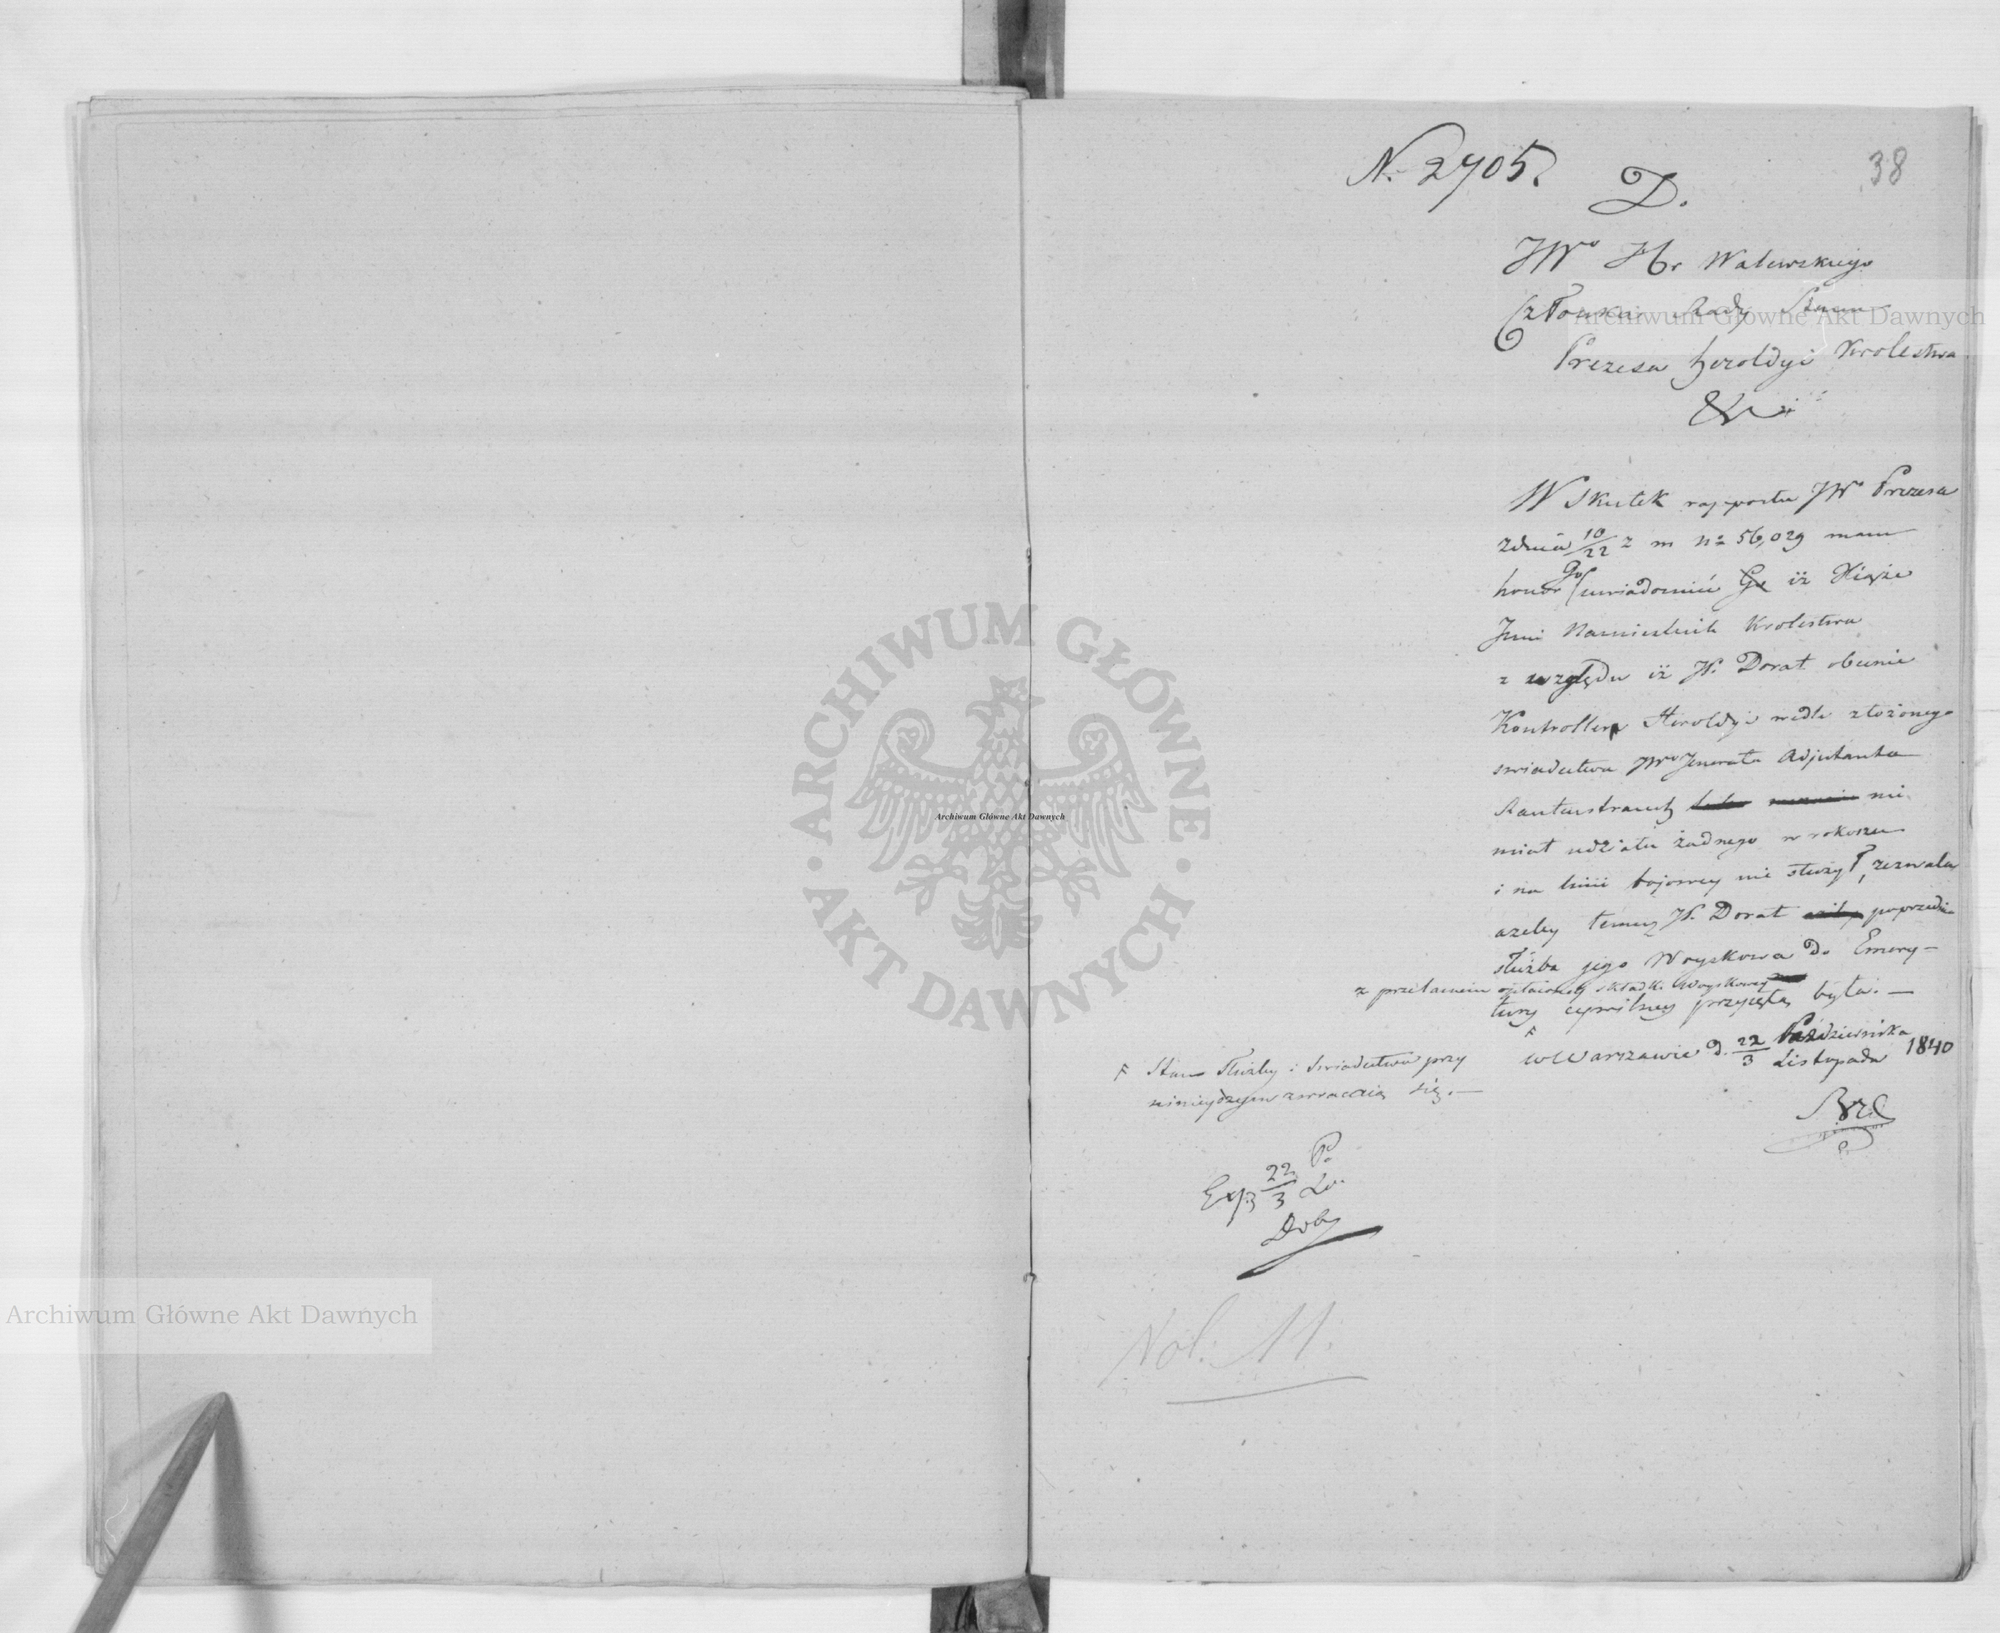 N. 2705.
38
D.
JWo Hr Walewskiego
Członka Rady Stanu
Prezesa heroldyi Krolestwa
W Skutek rapportu JWo Prezesa
z dnia 10/22 z m No 56,029 mam
honor Go uwiadomić Go iż Xiąże
Jmć Namiestnik Krolestwa
z względu iż W. Dorat obecnie
Kontroller Heroldyi wedle złożonego
swiadectwa JWo Jenerała Adjutanta
Rautenstrauch nie
miał udziału żadnego w rokoszu
i na linii bojowey nie służył, zezwala
azeby temuz W. Dorat poprzednia
służba jego Woyskowa do Emery-
z przelaniem składk. Woyskowey
tury cywilney przyjętą była. —
w Warszawie d. 22/3 Października/Listopada 1840
F Stan Służby i Swiadectwo przy
ninieyszym zwracaią się. —
Exp 22/3 P./Lis.
Vol. 11.
Archiwum Główne Akt Dawnych
Archiwum Główne Akt Dawnych
Archiwum Główne Akt Dawnych
ARCHIWUM GŁÓWNE
AKT DAWNYCH